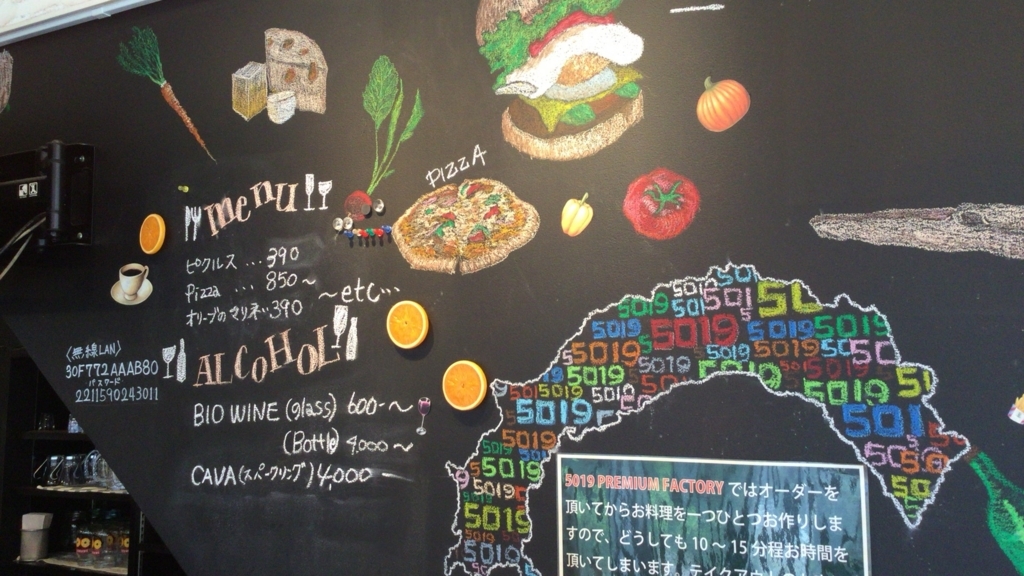 PIZZA
menu
ピクルス ... 390
Pizza ... 850〜
オリーブのマリネ..390
〜etc...
ALCOHOL
BIO WINE (glass) 600-〜
(Bottle) 4,000〜
CAVA (スパークリング) 4,000
〈無線LAN〉
30F772AAAB80
パスワード
2211590243011
5019
5019 PREMIUM FACTORY ではオーダーを
頂いてからお料理を一つひとつお作りしま
すので、どうしても 10 〜 15 分程お時間を
頂いてしまいます。テイクアウ